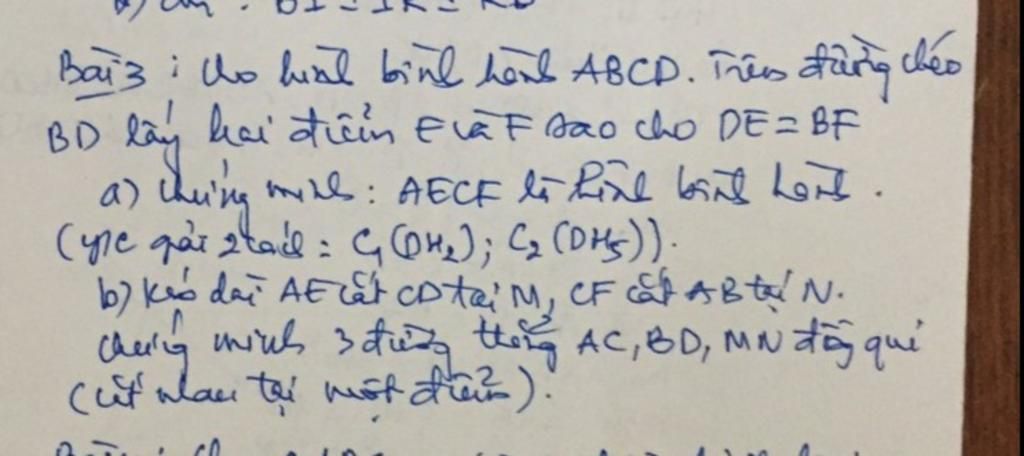 Bài 3 : Cho hình bình hành ABCD. Trên đường chéo
BD lấy hai điểm E và F sao cho DE = BF
a) Chứng minh : AECF là hình bình hành .
(y/c giải 2 cách : C₁(DH₂); C₂(DH₅)).
b) Kéo dài AE cắt CD tại M, CF cắt AB tại N.
chứng minh 3 đường thẳng AC, BD, MN đồng qui
(cắt nhau tại một điểm).